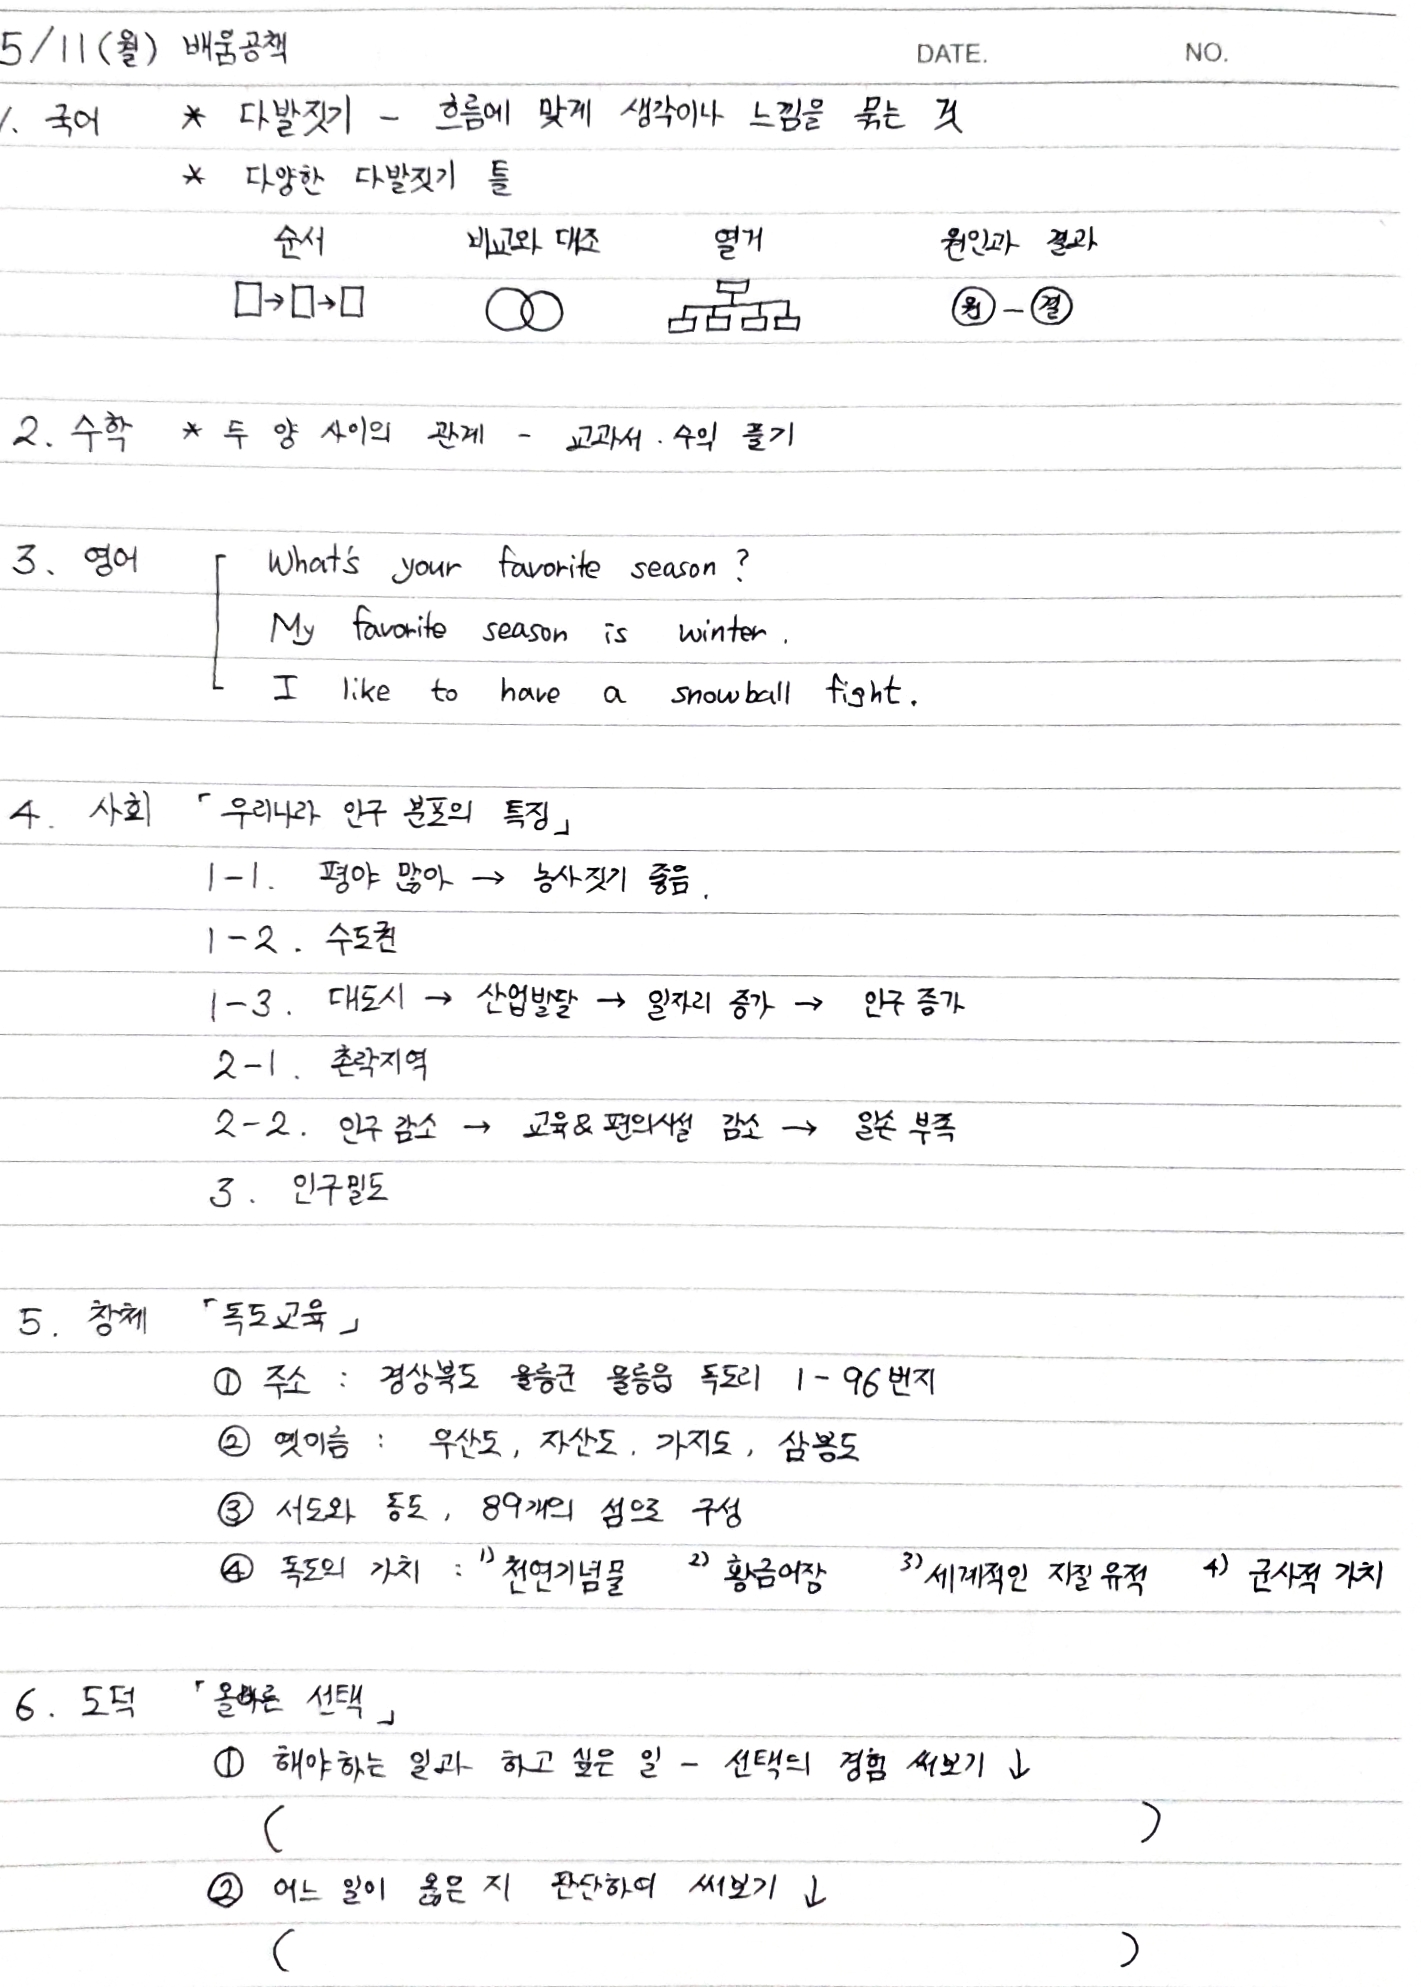 5/11(월) 배움공책 DATE. NO.
1. 국어 * 다발짓기 - 흐름에 맞게 생각이나 느낌을 묶는 것
* 다양한 다발짓기 틀
순서 비교와 대조 열거 원인과 결과
□→□→□ 원 - 결
2. 수학 * 두 양 사이의 관계 - 교과서. 수익 풀기
3. 영어 What's your favorite season?
My favorite season is winter.
I like to have a snowball fight.
4. 사회 「우리나라 인구 분포의 특징」
1-1. 평야 많아 → 농사짓기 좋음.
1-2. 수도권
1-3. 대도시 → 산업발달 → 일자리 증가 → 인구 증가
2-1. 촌락지역
2-2. 인구 감소 → 교육&편의시설 감소 → 일손 부족
3. 인구밀도
5. 창체 「독도교육」
① 주소 : 경상북도 울릉군 울릉읍 독도리 1-96번지
② 옛이름 : 우산도, 자산도, 가지도, 삼봉도
③ 서도와 동도, 89개의 섬으로 구성
④ 독도의 가치 : 1) 천연기념물 2) 황금어장 3) 세계적인 지질유적 4) 군사적 가치
6. 도덕 「올바른 선택」
① 해야하는 일과 하고 싶은 일 - 선택의 경험 써보기 ↓
( )
② 어느 일이 옳은 지 판단하여 써보기 ↓
( )